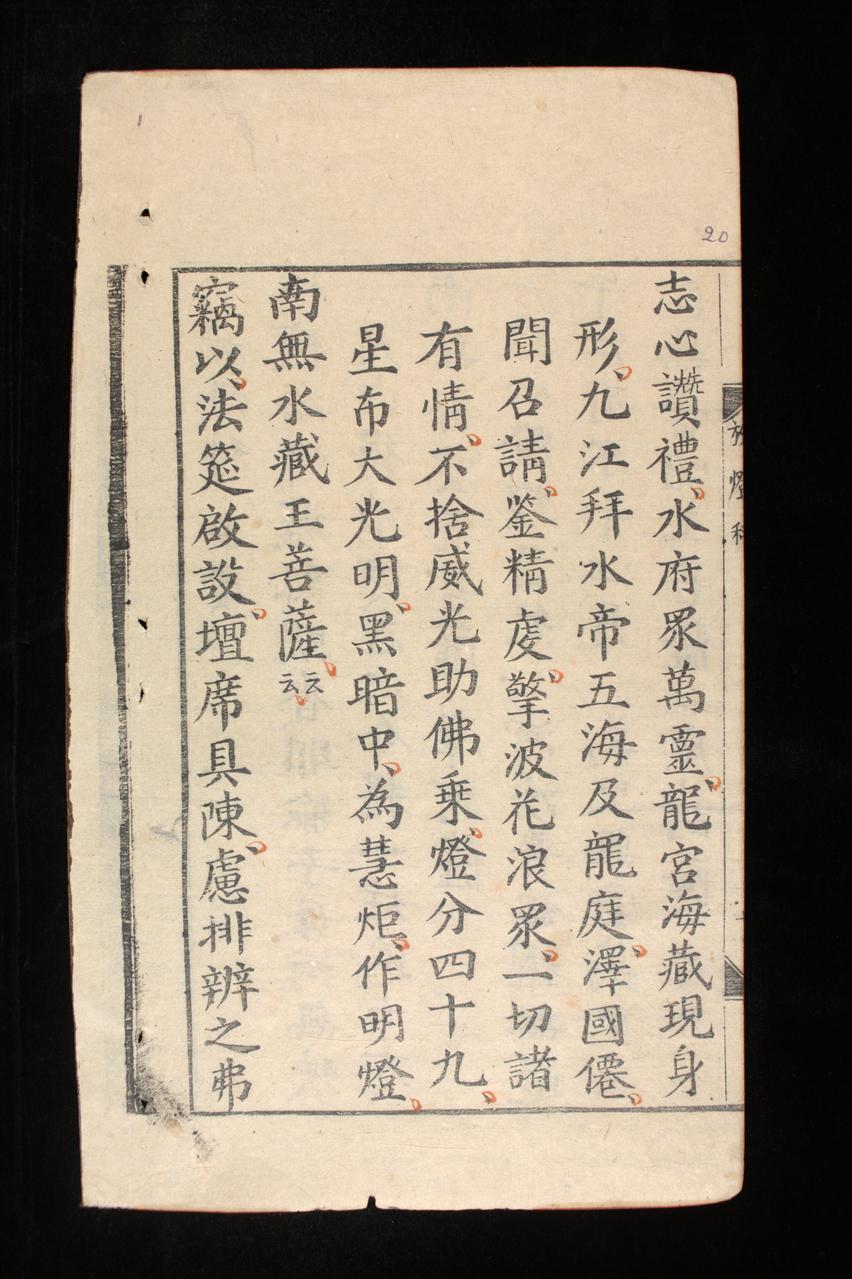 20
放燈科
志心讚禮、水府眾萬靈、龍宮海藏現身
形、九江拜水帝五海及龍庭、澤國僊、
聞召請、鉴精虔、擎波花浪眾、一切諸
有情、不捨威光助佛乘、燈分四十九、
星布大光明、黑暗中、為慧炬、作明燈、
南無水藏王菩薩、云云、
竊以、法筵啟設、壇席具陳、慮排辨之弗